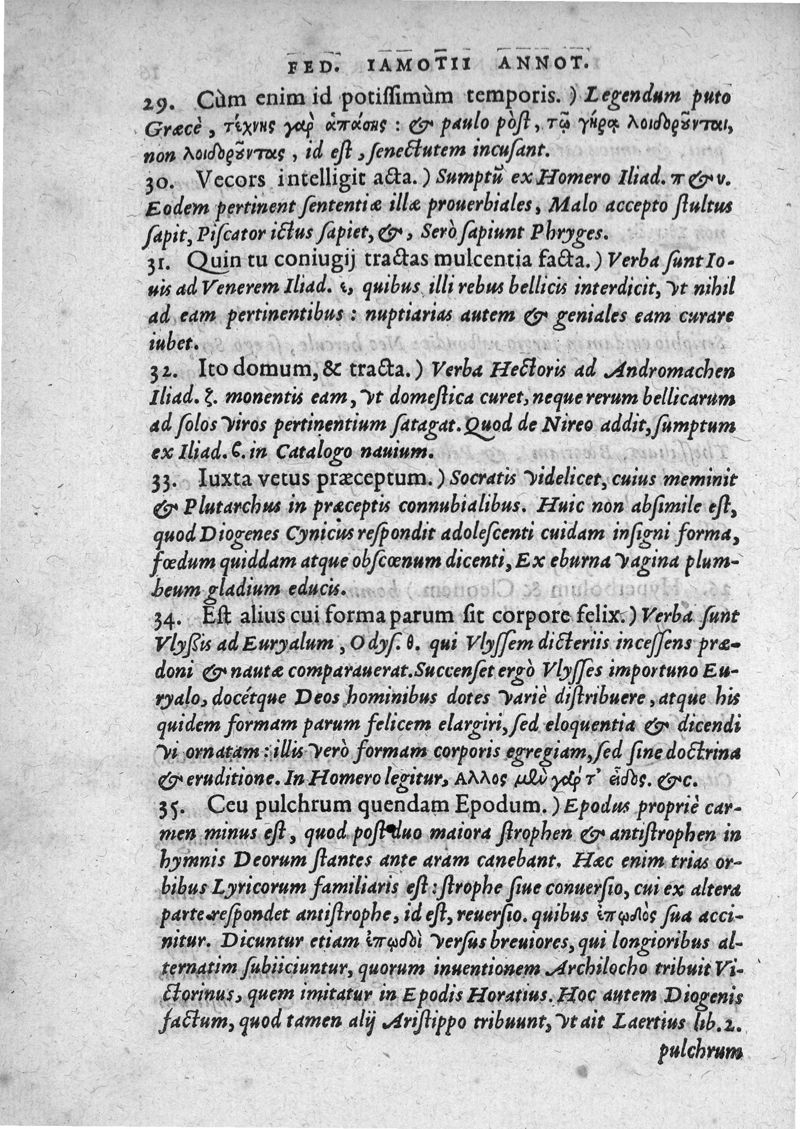 FED. IAMOTII ANNOT.
29. Cùm enim id potissimùm temporis.) Legendum puto
Græcè, τέχνης γαρ̀ ἁπάσης: & paulo pòst, τῷ γήρᾳ λοιδορȣ̃νται,
non λοιδορȣ̃ντας, id est, senectutem incusant.
30. Vecors intelligit acta.) Sumptũ ex Homero Iliad. π & υ.
Eodem pertinent sententiæ illæ prouerbiales, Malo accepto stultus
sapit, Piscator ictus sapiet, &, Serò sapiunt Phryges.
31. Quin tu coniugij tractas mulcentia facta.) Verba sunt Io-
uis ad Venerem Iliad. ε, quibus illi rebus bellicis interdicit, vt nihil
ad eam pertinentibus: nuptiarias autem & geniales eam curare
iubet.
32. Ito domum, & tracta.) Verba Hectoris ad Andromachen
Iliad. ζ. monentis eam, vt domestica curet, neque rerum bellicarum
ad solos viros pertinentium satagat. Quod de Nireo addit, sumptum
ex Iliad. ϐ. in Catalogo nauium.
33. Iuxta vetus præceptum.) Socratis videlicet, cuius meminit
& Plutarchus in præceptis connubialibus. Huic non absimile est,
quod Diogenes Cynicus respondit adolescenti cuidam insigni forma,
fœdum quiddam atque obscœnum dicenti, Ex eburna vagina plum-
beum gladium educis.
34. Est alius cui forma parum sit corpore felix.) Verba sunt
Vlyssis ad Euryalum, Odys. θ. qui Vlyssem dicteriis incessens præ-
doni & nautæ comparauerat. Succenset ergò Vlysses importuno Eu-
ryalo, docétque Deos hominibus dotes variè distribuere, atque his
quidem formam parum felicem elargiri, sed eloquentia & dicendi
vi ornatam: illis verò formam corporis egregiam, sed sine doctrina
& eruditione. In Homero legitur, Αλλος μὲν γάρ τ' εἶδος. &c.
35. Ceu pulchrum quendam Epodum.) Epodus propriè car-
men minus est, quod post duo maiora strophen & antistrophen in
hymnis Deorum stantes ante aram canebant. Hæc enim trias or-
bibus Lyricorum familiaris est: strophe siue conuersio, cui ex altera
parte respondet antistrophe, id est, reuersio. quibus ἐπῳδὸς sua acci-
nitur. Dicuntur etiam ἐπῳδοὶ versus breuiores, qui longioribus al-
ternatim subiiciuntur, quorum inuentionem Archilocho tribuit Vi-
ctorinus, quem imitatur in Epodis Horatius. Hoc autem Diogenis
factum, quod tamen alij Aristippo tribuunt, vt ait Laertius lib. 2.
pulchrum